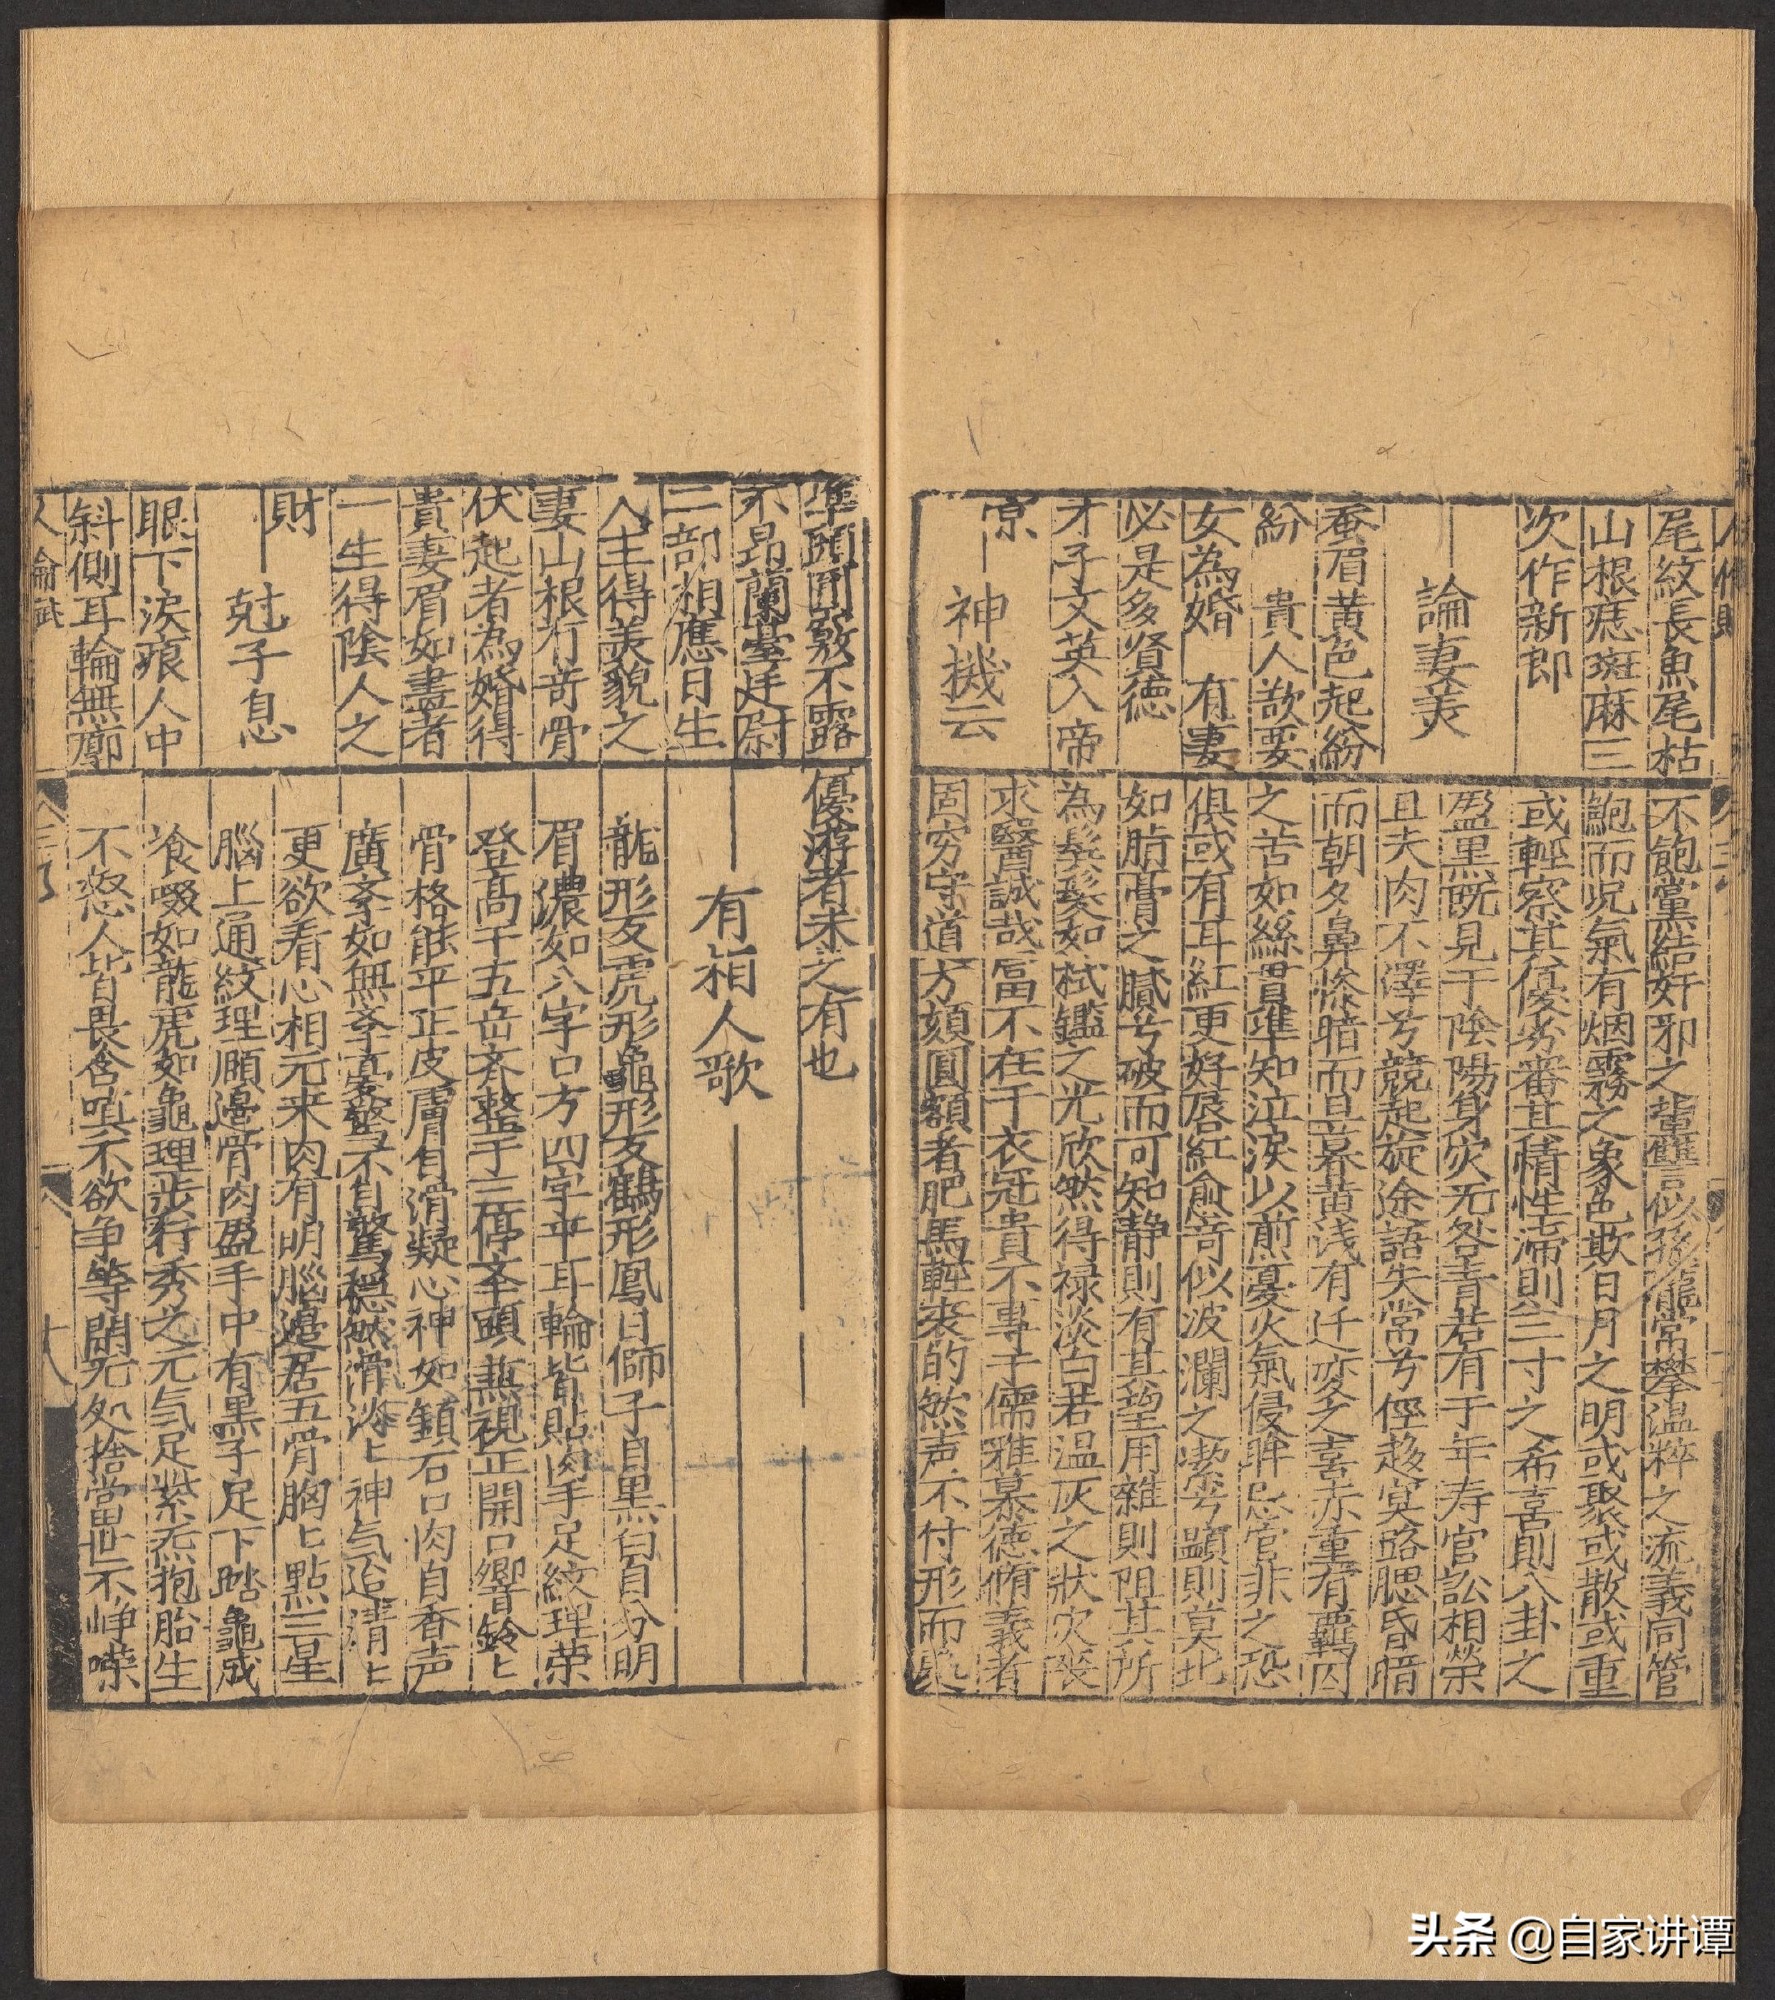 尾紋長魚尾枯
山根痣斑麻三
次作新郎
論妻美
蚕眉黄色起紛
紛　貴人歡要
女為婚　有妻
必是多賢德
才子文英入帝
京
神機云
不飽黨結奸邪之輩讐言似孫龍常攀温粹之流義同管
鮑而况氣有烟霧之象色欺日月之明或聚或散或重
或輕察其優劣審其情性濡則三寸之希喜則八卦之
盈黒既見于陰陽身灾无咎青若有于年寿官訟相縈
且夫肉不澤兮競起旋途語失常兮徑趍冥路腮昏暗
而朝夕鼻慘暗而旦暮黄浅有迁变之喜赤重有羈囚
之苦如絲貫準知泣淚以煎憂火氣侵眸忌官非之恐
俱或有耳紅更好唇紅愈竒似波瀾之潔兮顯則莫北
如脂膏之膩兮破而可知静則有其望用雜則阻其所
為鬓髮如栻鑑之光欣然得禄淡白若温灰之狀灾喪
求醫誠哉富不在于衣冠貴不專于儒雅慕德脩義者
固穷守道方頦圓額者肥馬輕裘的然声不付形而
準頭囲皷不露
不昻蘭臺廷尉
二部相應日生
人主得美貌之
妻山根行竒骨
伏起者為婚得
貴妻眉如畫者
一生得陰人之
財
尅子息
眼下淚痕人中
斜側耳輪無廓
人倫賦
優游者未之有也
有相人歌
龍形友虎形龜形友鶴形鳳目獅子目黒白頁分明
眉濃如八字口方四字平耳輪皆貼肉手足紋理荣
登髙于五岳齐整于三停夲頭燕視正開口響音鈴匕
骨格能平正皮膚自滑凝心神如鎮石口肉自香声
廣夲如無夲憂驚不自驚穩然骨淡匕神气迨清匕
更欲看心相元来肉有明腦邉居五骨胸匕點三星
腦上通紋理頤邉骨肉盈手中有黒子足下踏龜成
飡啜如龍虎如龜理步行秀之元气足紫炁抱胎生
不愁人皆畏含嗔不欲争等閑无処捨當世不峥嶸
十八
头条 @自家讲谭